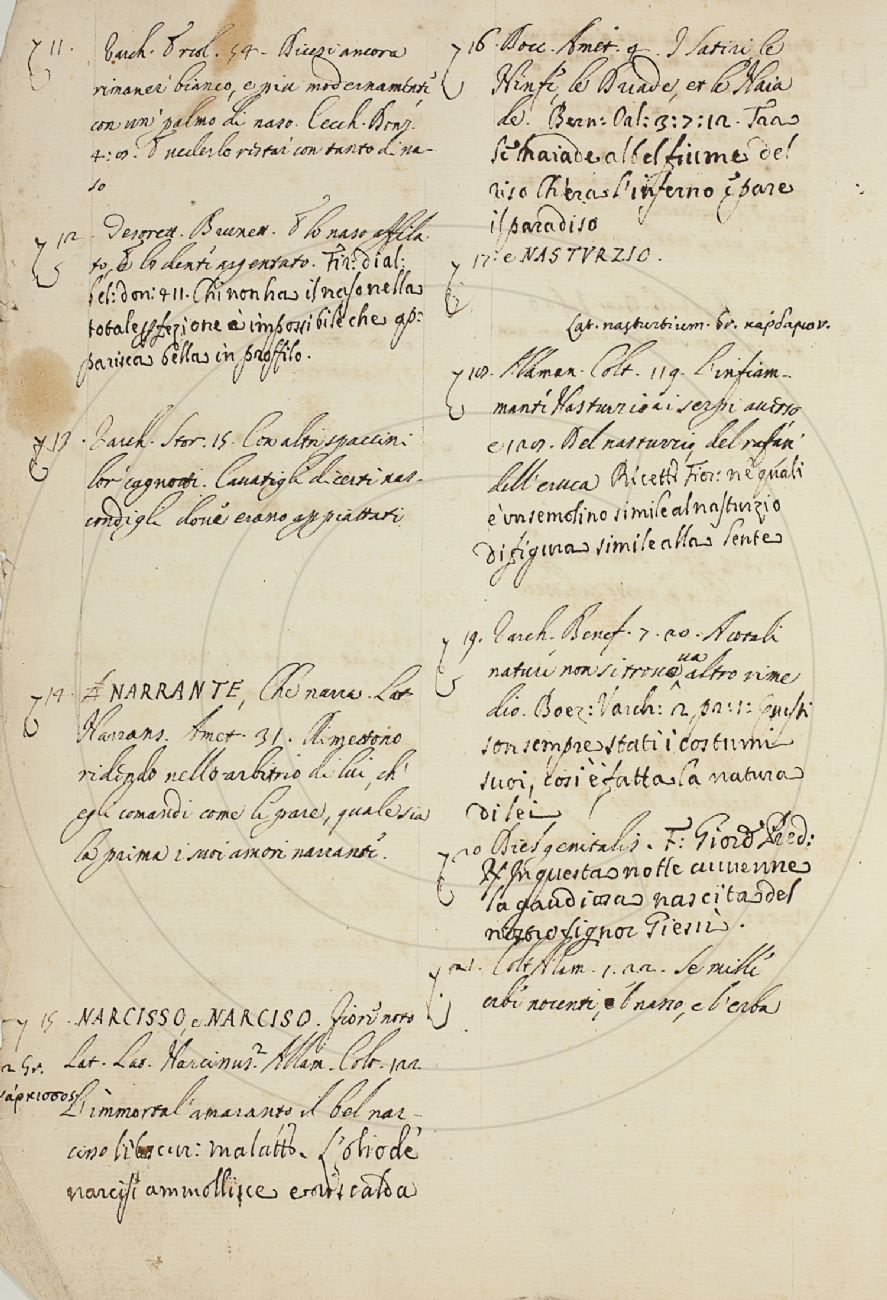 11. Varch. Ercol. 54. Dicesi ancora
rimaner bianco, e piu modernamente
con un palmo di naso. Cecch. Donz.
4:9. E vederlo restar con tanto di na-
so
12. Brunett. E lo naso affila
to, E lo denti argentato. Fir: dial:
bel: don: 411. Chi non ha il naso nella
totale pfezione è impossibile che ap:
parisca bella in proffilo.
13. Varch. Stor. 15. Con altri spaccini
lor cagnotti. Cavatigli di certi nas-
condigli dove erano appiattati
14. NARRANTE, Che narra. Lat.
Narrans. Amet. 31. Rimettono
ridendo nello arbitrio di lui, ch'
egli comandi come li pare, quale sia
la prima i suoi amori narrante.
15. NARCISSO, e NARCISO. Fiore noto
Lat. Narcissus. Allam. Colt. 122
Gr. νάρκισσος
L'immortal' amaranto il bel nar-
ciso lib cur: malatt. L'olio de
narcisi ammollisce e riscalda
16. Bocc. Amet. 9. I Satiri le
Ninfe, le Driade, et le Naia
de. Bern: Oal: 3:7:12. Tra
le naiade al bel fiume del
riso Ch'era l'inferno e pare
il paradiso
17. e NASTVRZIO.
Lat. nasturtium. Gr. κάρδαμον.
18. Alaman. Colt. 119. L'infiam-
mante Nasturzio ai serpi avverso
e 129. Del nasturzio, del rafan'
dell'eruca Ricett. Fior: ne quali
è un semolino simile al nasturzio
di figura simile alla lente
19. Varch. Benef. 7. 20. A cotali
nature non si trova altro rime
dio. Boez: Varch: 2, pr: 1: Questi
son sempre stati i costumi
suoi, così è fatta la natura
di lei
20 Dies genitalis. F: Giord. Pred:
In questa notte avvenne
la gaudiosa nascita del
nostro signor Giesù.
21. Colt. Alam. 1. 22. Se mille
erbe nocenti, e'l nasso, e l'erba